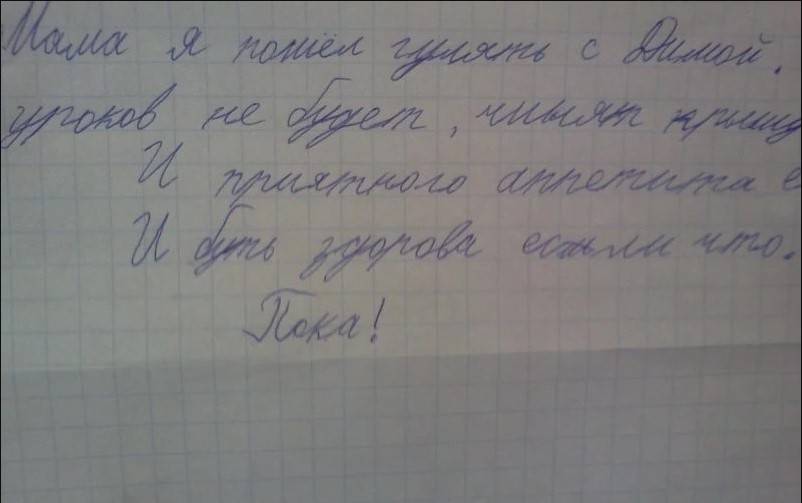 Мама я пошёл гулять с Димой.
уроков не будет, чиьят крышу
И приятного аппетита е
И буть здорова есньли что.
Пока!